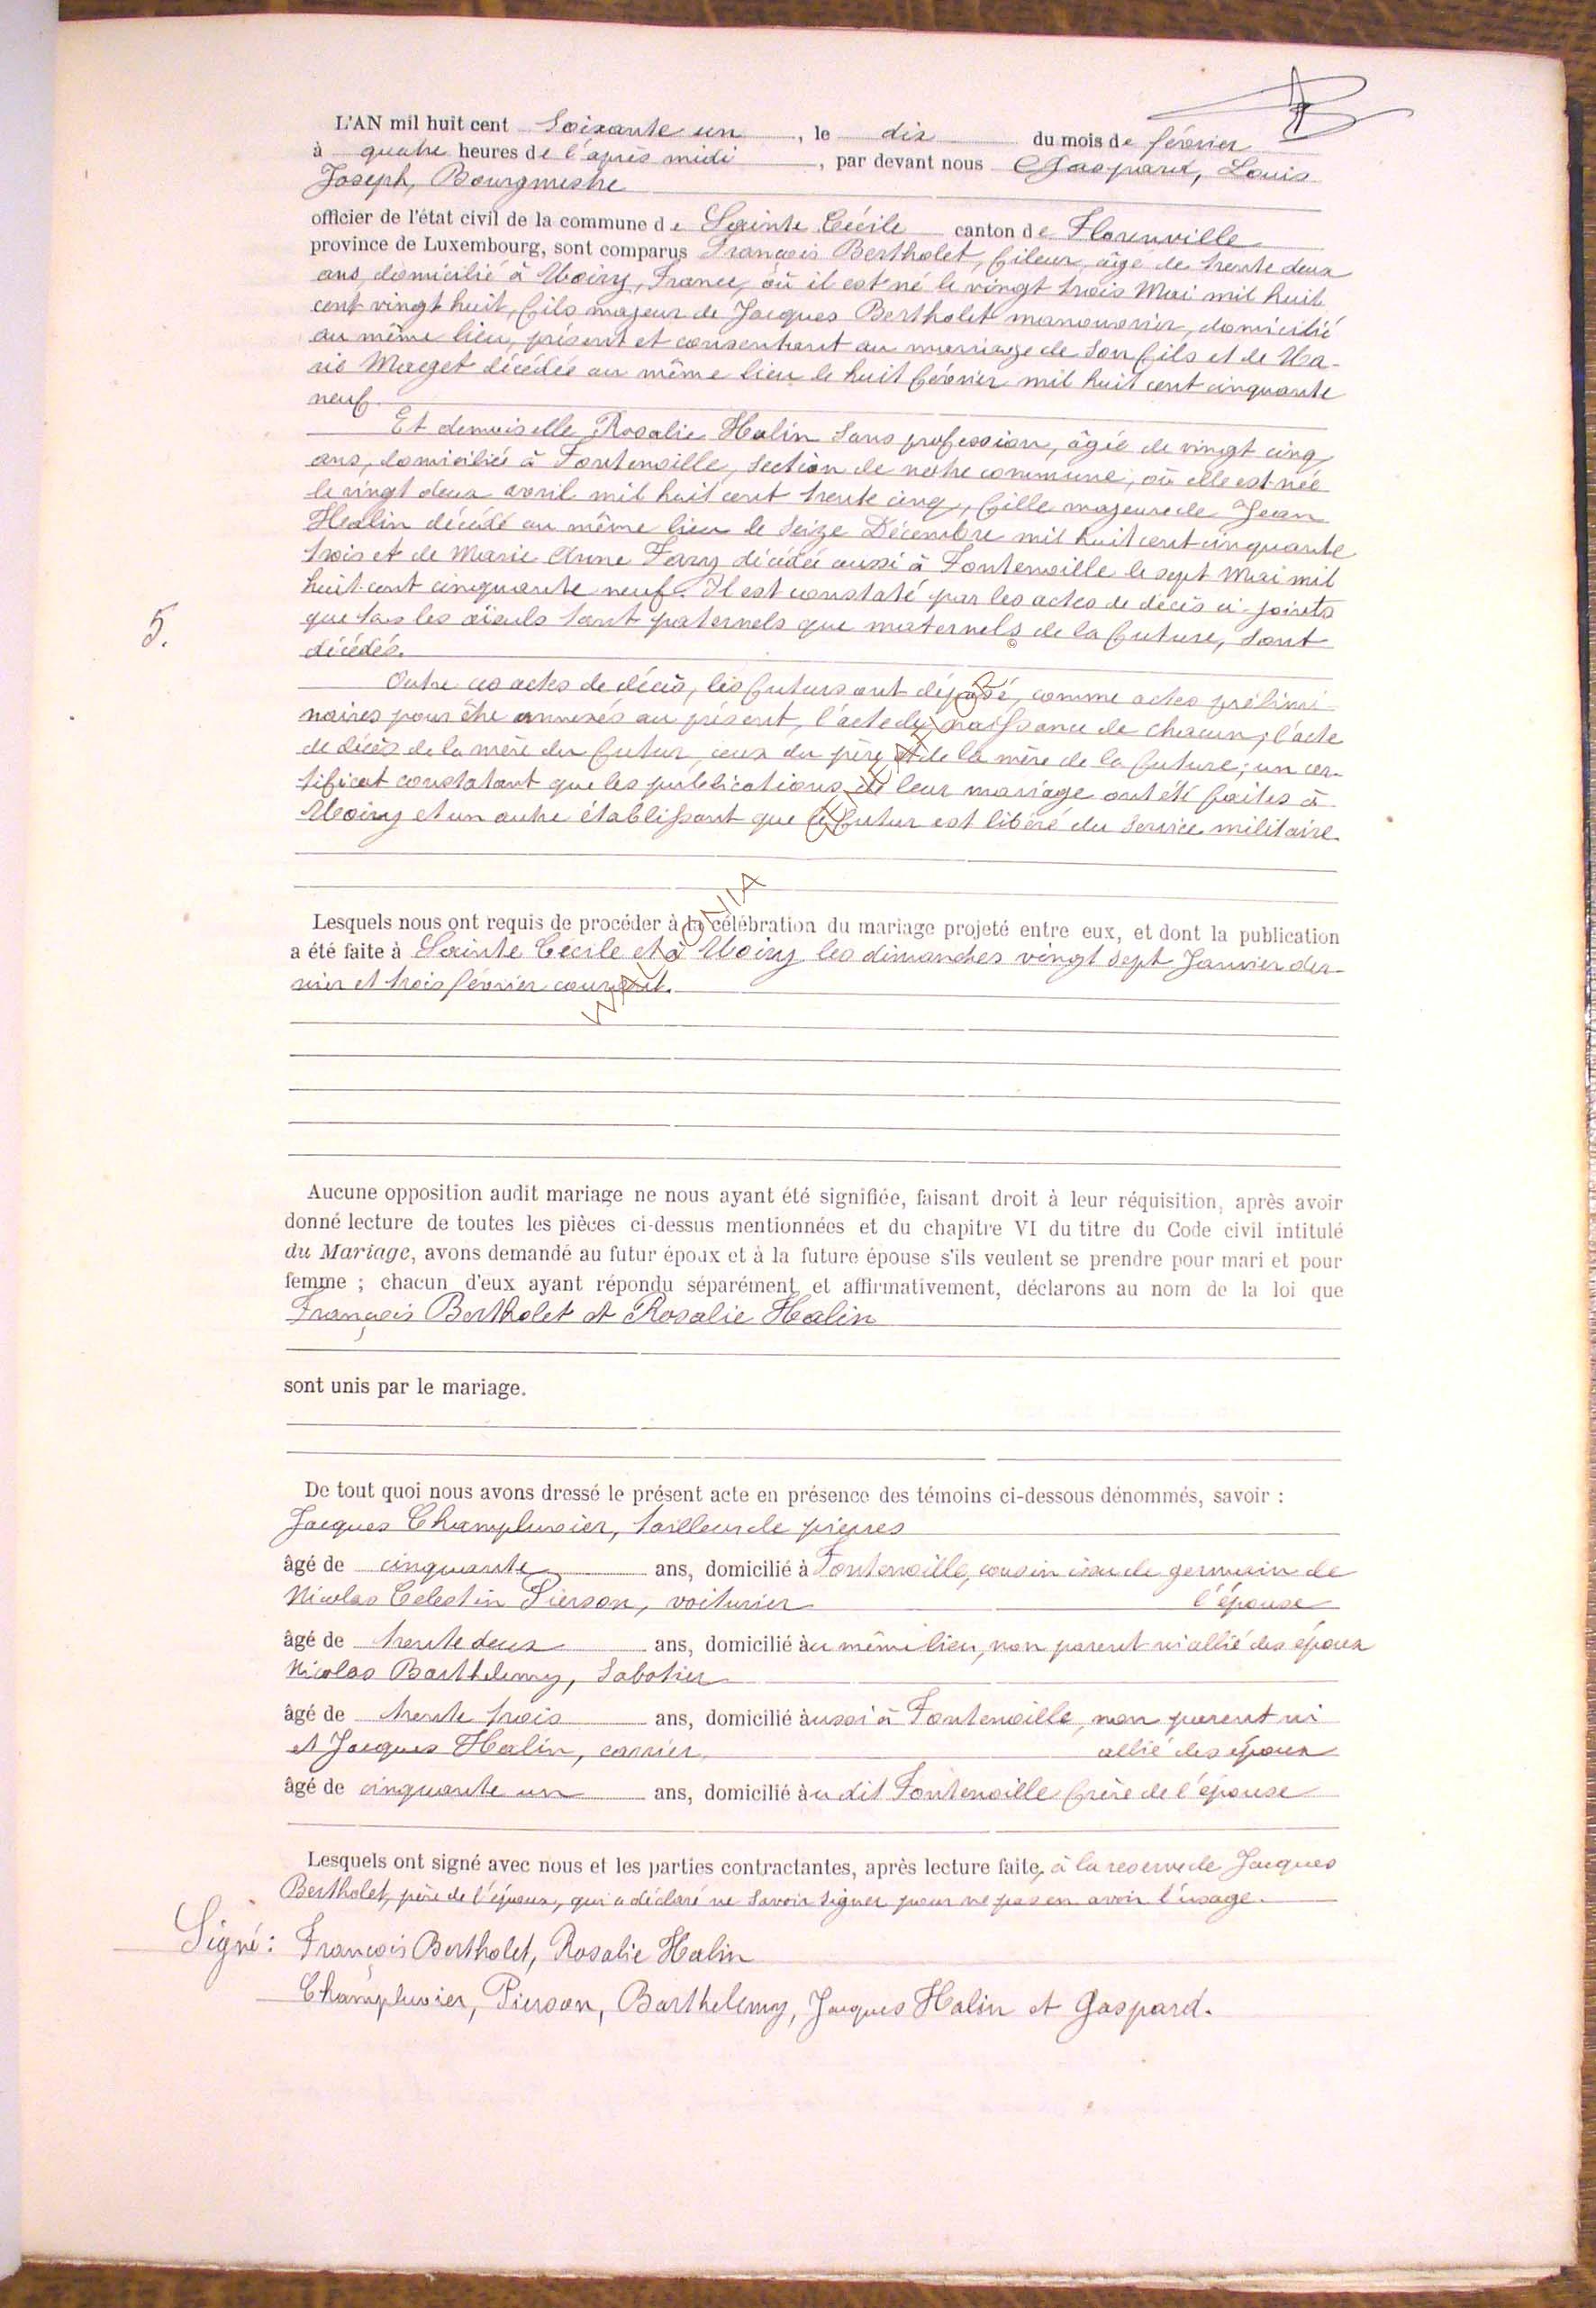 L'AN mil huit cent Soixante un, le dix du mois de février
à quatre heures de l'après midi, par devant nous Gaspard, Louis
Joseph, Bourgmestre
officier de l'état civil de la commune de Sainte Cécile canton de Florenville
province de Luxembourg, sont comparus François Bertholet, fileur, âgé de trente deux
ans, domicilié à Moiry, France, où il est né le vingt trois Mai mil huit
cent vingt huit, fils majeur de Jacques Bertholet manouvrier, domicilié
au même lieu, présent et consentant au mariage de Son fils et de Ma-
rie Maget décédée au même lieu le huit février mil huit cent cinquante
neuf.
Et demoiselle Rosalie Halin Sans profession, âgée de vingt cinq
ans, domiciliée à Fontenoille, Section de notre commune, où elle est née
le vingt deux avril mil huit cent trente cinq, fille majeure de Jean
Halin décédé au même lieu le Seize Décembre mil huit cent cinquante
trois et de Marie Anne Fary décédée aussi à Fontenoille le sept Mai mil
huit cent cinquante neuf. Il est constaté par les actes de décès ci-joints
5.
que tous les aïeuls tant paternels que maternels de la future, Sont
décédés.
Outre ces actes de décès, les futurs ont déposé, comme actes prélimi
naires pour être annexés au présent, l'acte de naissance de chacun; l'acte
de décès de la mère du futur, ceux du père et de la mère de la future; un cer-
tificat constatant que les publications de leur mariage ont été faites à
Moiry et un autre établissant que le futur est libéré du Service militaire.
WALLONIA GENEALOGY ©
Lesquels nous ont requis de procéder à la célébration du mariage projeté entre eux, et dont la publication
a été faite à Sainte Cécile et à Moiry les dimanches vingt Sept Janvier der-
nier et trois février courant.
Aucune opposition audit mariage ne nous ayant été signifiée, faisant droit à leur réquisition, après avoir
donné lecture de toutes les pièces ci-dessus mentionnées et du chapitre VI du titre du Code civil intitulé
du Mariage, avons demandé au futur époux et à la future épouse s'ils veulent se prendre pour mari et pour
femme ; chacun d'eux ayant répondu séparément et affirmativement, déclarons au nom de la loi que
François Bertholet et Rosalie Halin
sont unis par le mariage.
De tout quoi nous avons dressé le présent acte en présence des témoins ci-dessous dénommés, savoir :
Jacques Champluvier, tailleur de pierres
âgé de cinquante ans, domicilié à Fontenoille, cousin issu de germain de
Nicolas Celestin Pierson, voiturier l'épouse
âgé de trente deux ans, domicilié au même lieu, non parent ni allié des époux
Nicolas Barthelemy, Sabotier
âgé de trente trois ans, domicilié aussi à Fontenoille, non parent ni
et Jacques Halin, carrier, allié des époux
âgé de cinquante un ans, domicilié au dit Fontenoille frère de l'épouse
Lesquels ont signé avec nous et les parties contractantes, après lecture faite, à la reserve de Jacques
Bertholet, père de l'époux, qui a déclaré ne Savoir Signer pour ne pas en avoir l'usage.
Signé : François Bertholet, Rosalie Halin
Champluvier, Pierson, Barthelemy, Jacques Halin et Gaspard.